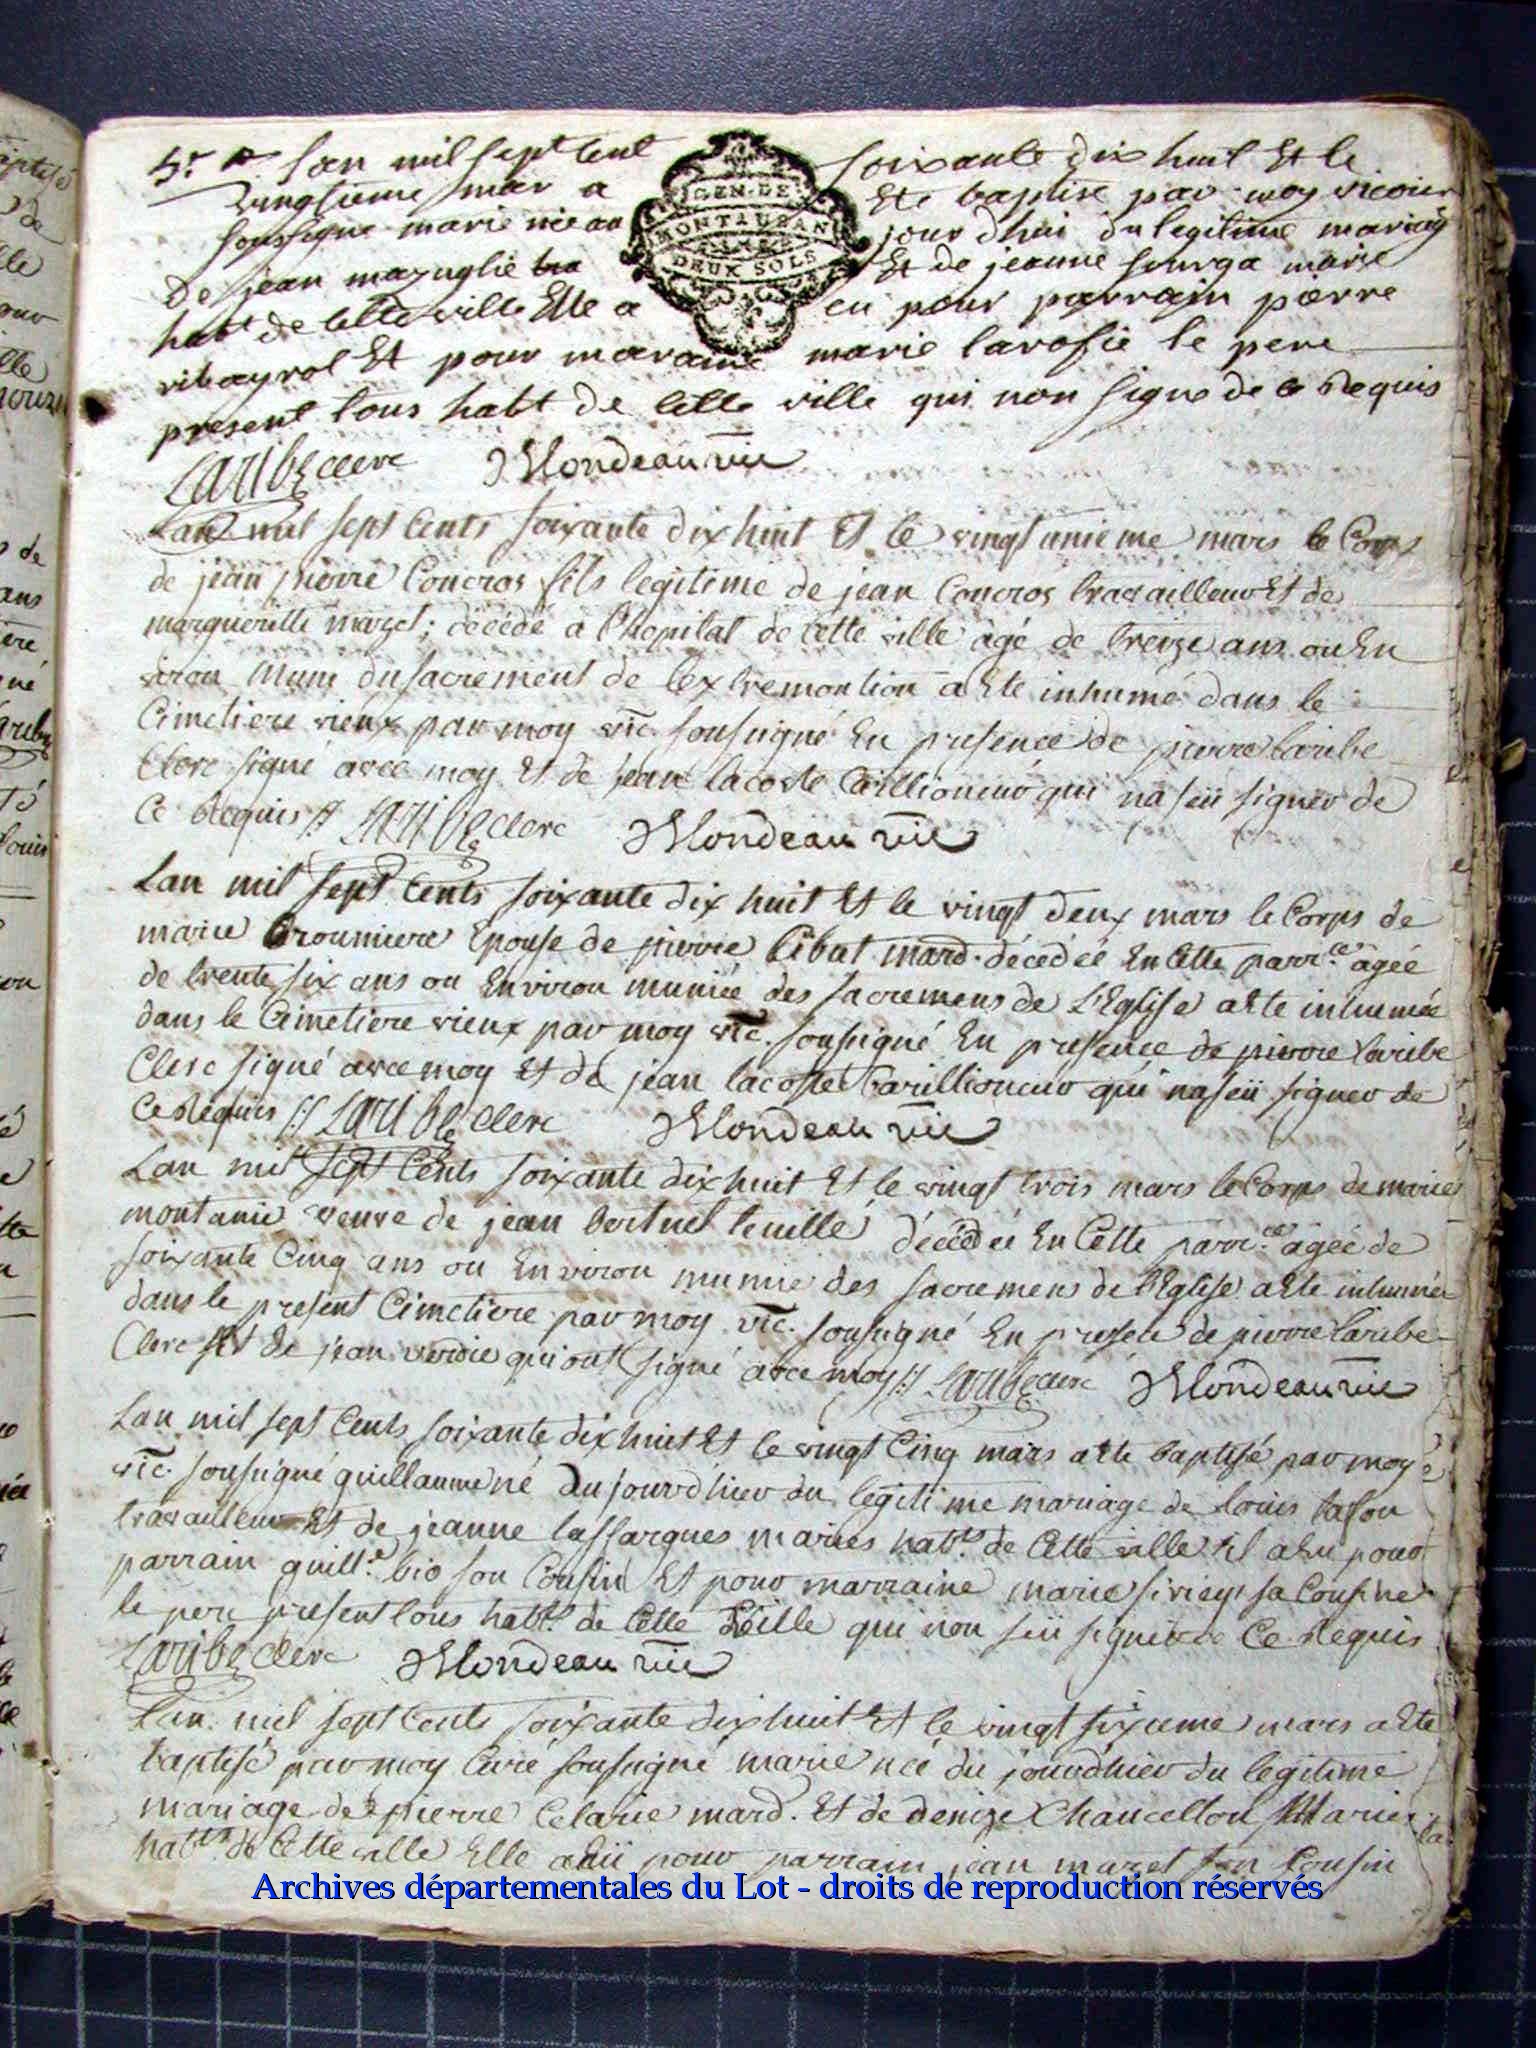 5.r Lan mil sept cent soixante dix huit Et le
vingtieme mar a Ete baptise par moy vicaire
soussigne marie nee au jour dhui du legitime mariag
De jean mazuglie tra Et de jeanne sourga marie
habt de cette ville Elle a eu pour parrain pierre
ribayrol Et pour maraine marie larosie le pere
present tous habt de cette ville qui non signe de ce Requis
GEN. DE
MONTAUBAN
DEUX SOLS
Laribe clerc Mondeau vic
Lan mil sept Cents soixante dix huit Et le vingt unieme mars le Corps
de jean pierre Concros fils legitime de jean Concros travailleur Et de
margueritte mazet; décédé a l'hopital de cette ville agé de treize ans ou En
viron Muni du sacrement de lextremontion a Ete inhumé dans le
Cimetiere vieux par moy vic. sousigné En presence de pierre laribe
Clerc signé avec moy Et de jean lacoste Carillioneur qui na seü signer de
Ce Requis // Laribe clerc Mondeau vic
Lan mil sept Cents soixante dix huit Et le vingt deux mars le Corps de
marie Broumiere Epouse de pierre Cibat mard. décédéé En Cette parr.ce agéé
de trente six ans ou Environ muniée des sacremens de L'Eglise a Ete inhumée
dans le Cimetiere vieux par moy vic. sousigné En presence de pierre laribe
Clerc signé avec moy Et de jean lacoste Carillioneur qui na seü signer de
Ce Requis // Laribe clerc Mondeau vic
Lan mil sept Cents soixante dix huit Et le vingt trois mars le Corps de marie
montanie veuve de jean décédéé En Cette parr.ce agéé de
soixante Cinq ans ou Environ munie des sacremens de l'Eglise a Ete inhumée
dans le present Cimetiere par moy vic. sousigné En presence de pierre laribe
Clerc Et de jean verdie qui ont signé avec moy // Laribe clerc Mondeau vic
Lan mil sept Cents soixante dix huit Et le vingt Cinq mars a Ete baptisé par moy
vic. sousigné guillaume né Aujourd'hier du legitime mariage de louis lafon
travailleur Et de jeanne laffargues mariés habts de Cette ville il a Eu pour
parrain guill.e bio son Cousin Et pour marraine marie sirieys sa Cousine
le pere present tous habts de Cette Ville qui non seü signer de Ce Requis
Laribe clerc Mondeau vic
Lan mil sept Cents soixante dix huit Et le vingt sixieme mars a Ete
baptisé par moy Curé sousigné marie née du jourdhier du legitime
mariage de pierre Celarie mard. Et de denize Chancellon Mariés
habts de Cette ville Elle a Eü pour parrain jean mazet son Cousin
Archives départementales du Lot - droits de reproduction réservés